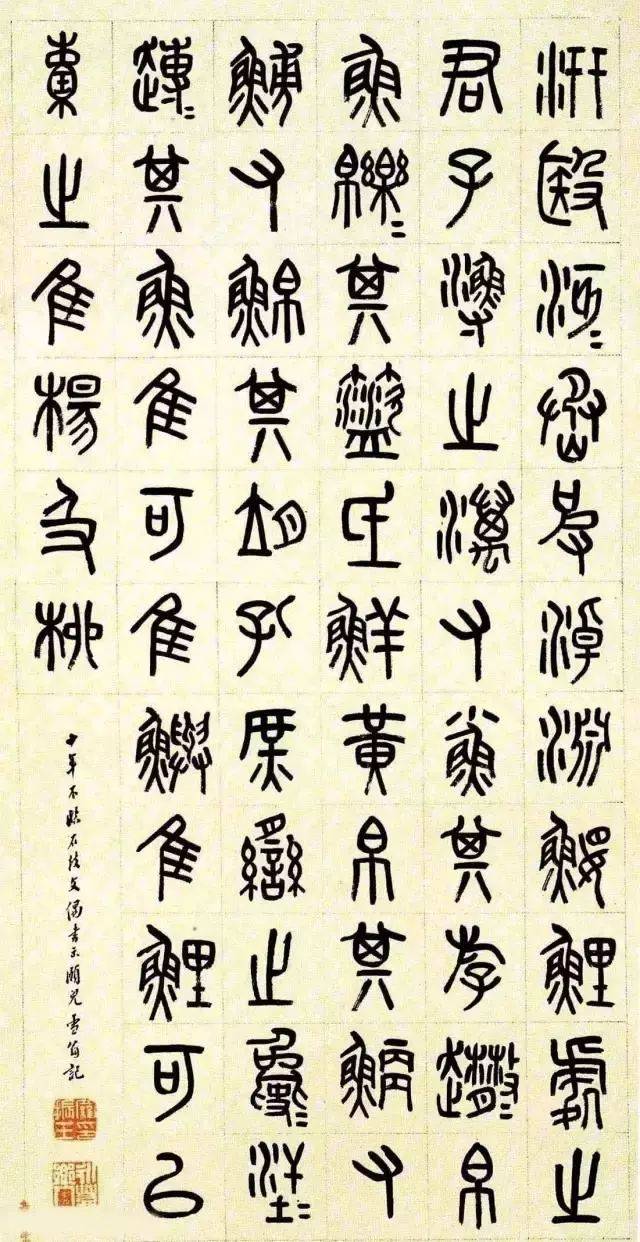 汧殹沔=丞皮淖淵鰋鯉處之
君子漁之澫又小魚其斿趩=帛
魚皪=其盜氐鮮黃帛其鯾又
鰟又鮊其朔孔庶臠之毚=汗=
趞=其魚隹可隹鱮隹鯉可㠯
橐之隹楊及柳
十年不臨石鼓文偶書示頤兒雪翁記